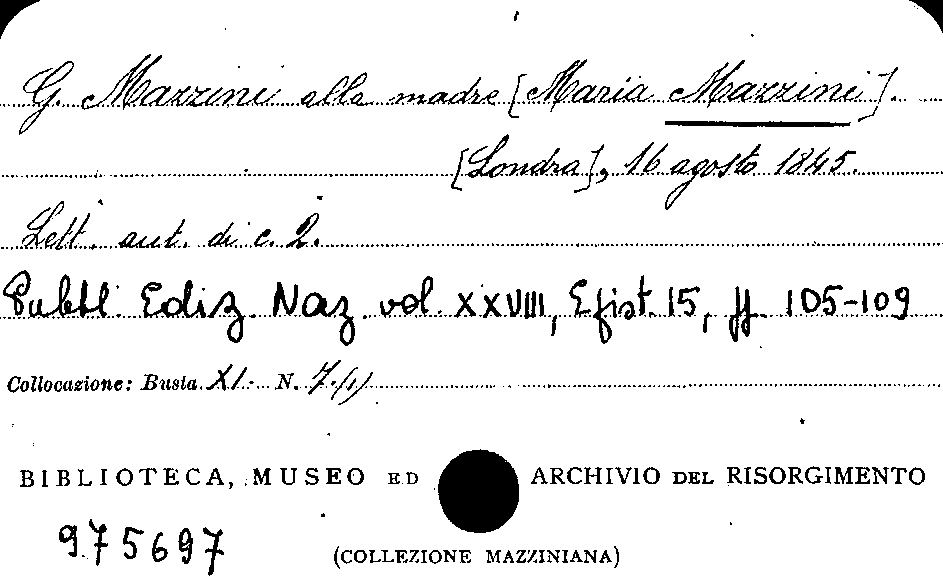 G. Mazzini alla madre [Maria Mazzini].
[Londra], 16 agosto 1845.
Lett. aut. di c. 2.
Pubbl. Ediz. Naz. vol. XXVIII, Epist. 15, pp. 105-109
Collocazione: Busta XI. N. 7.(1)
BIBLIOTECA, MUSEO ED ARCHIVIO DEL RISORGIMENTO
975697
(COLLEZIONE MAZZINIANA)